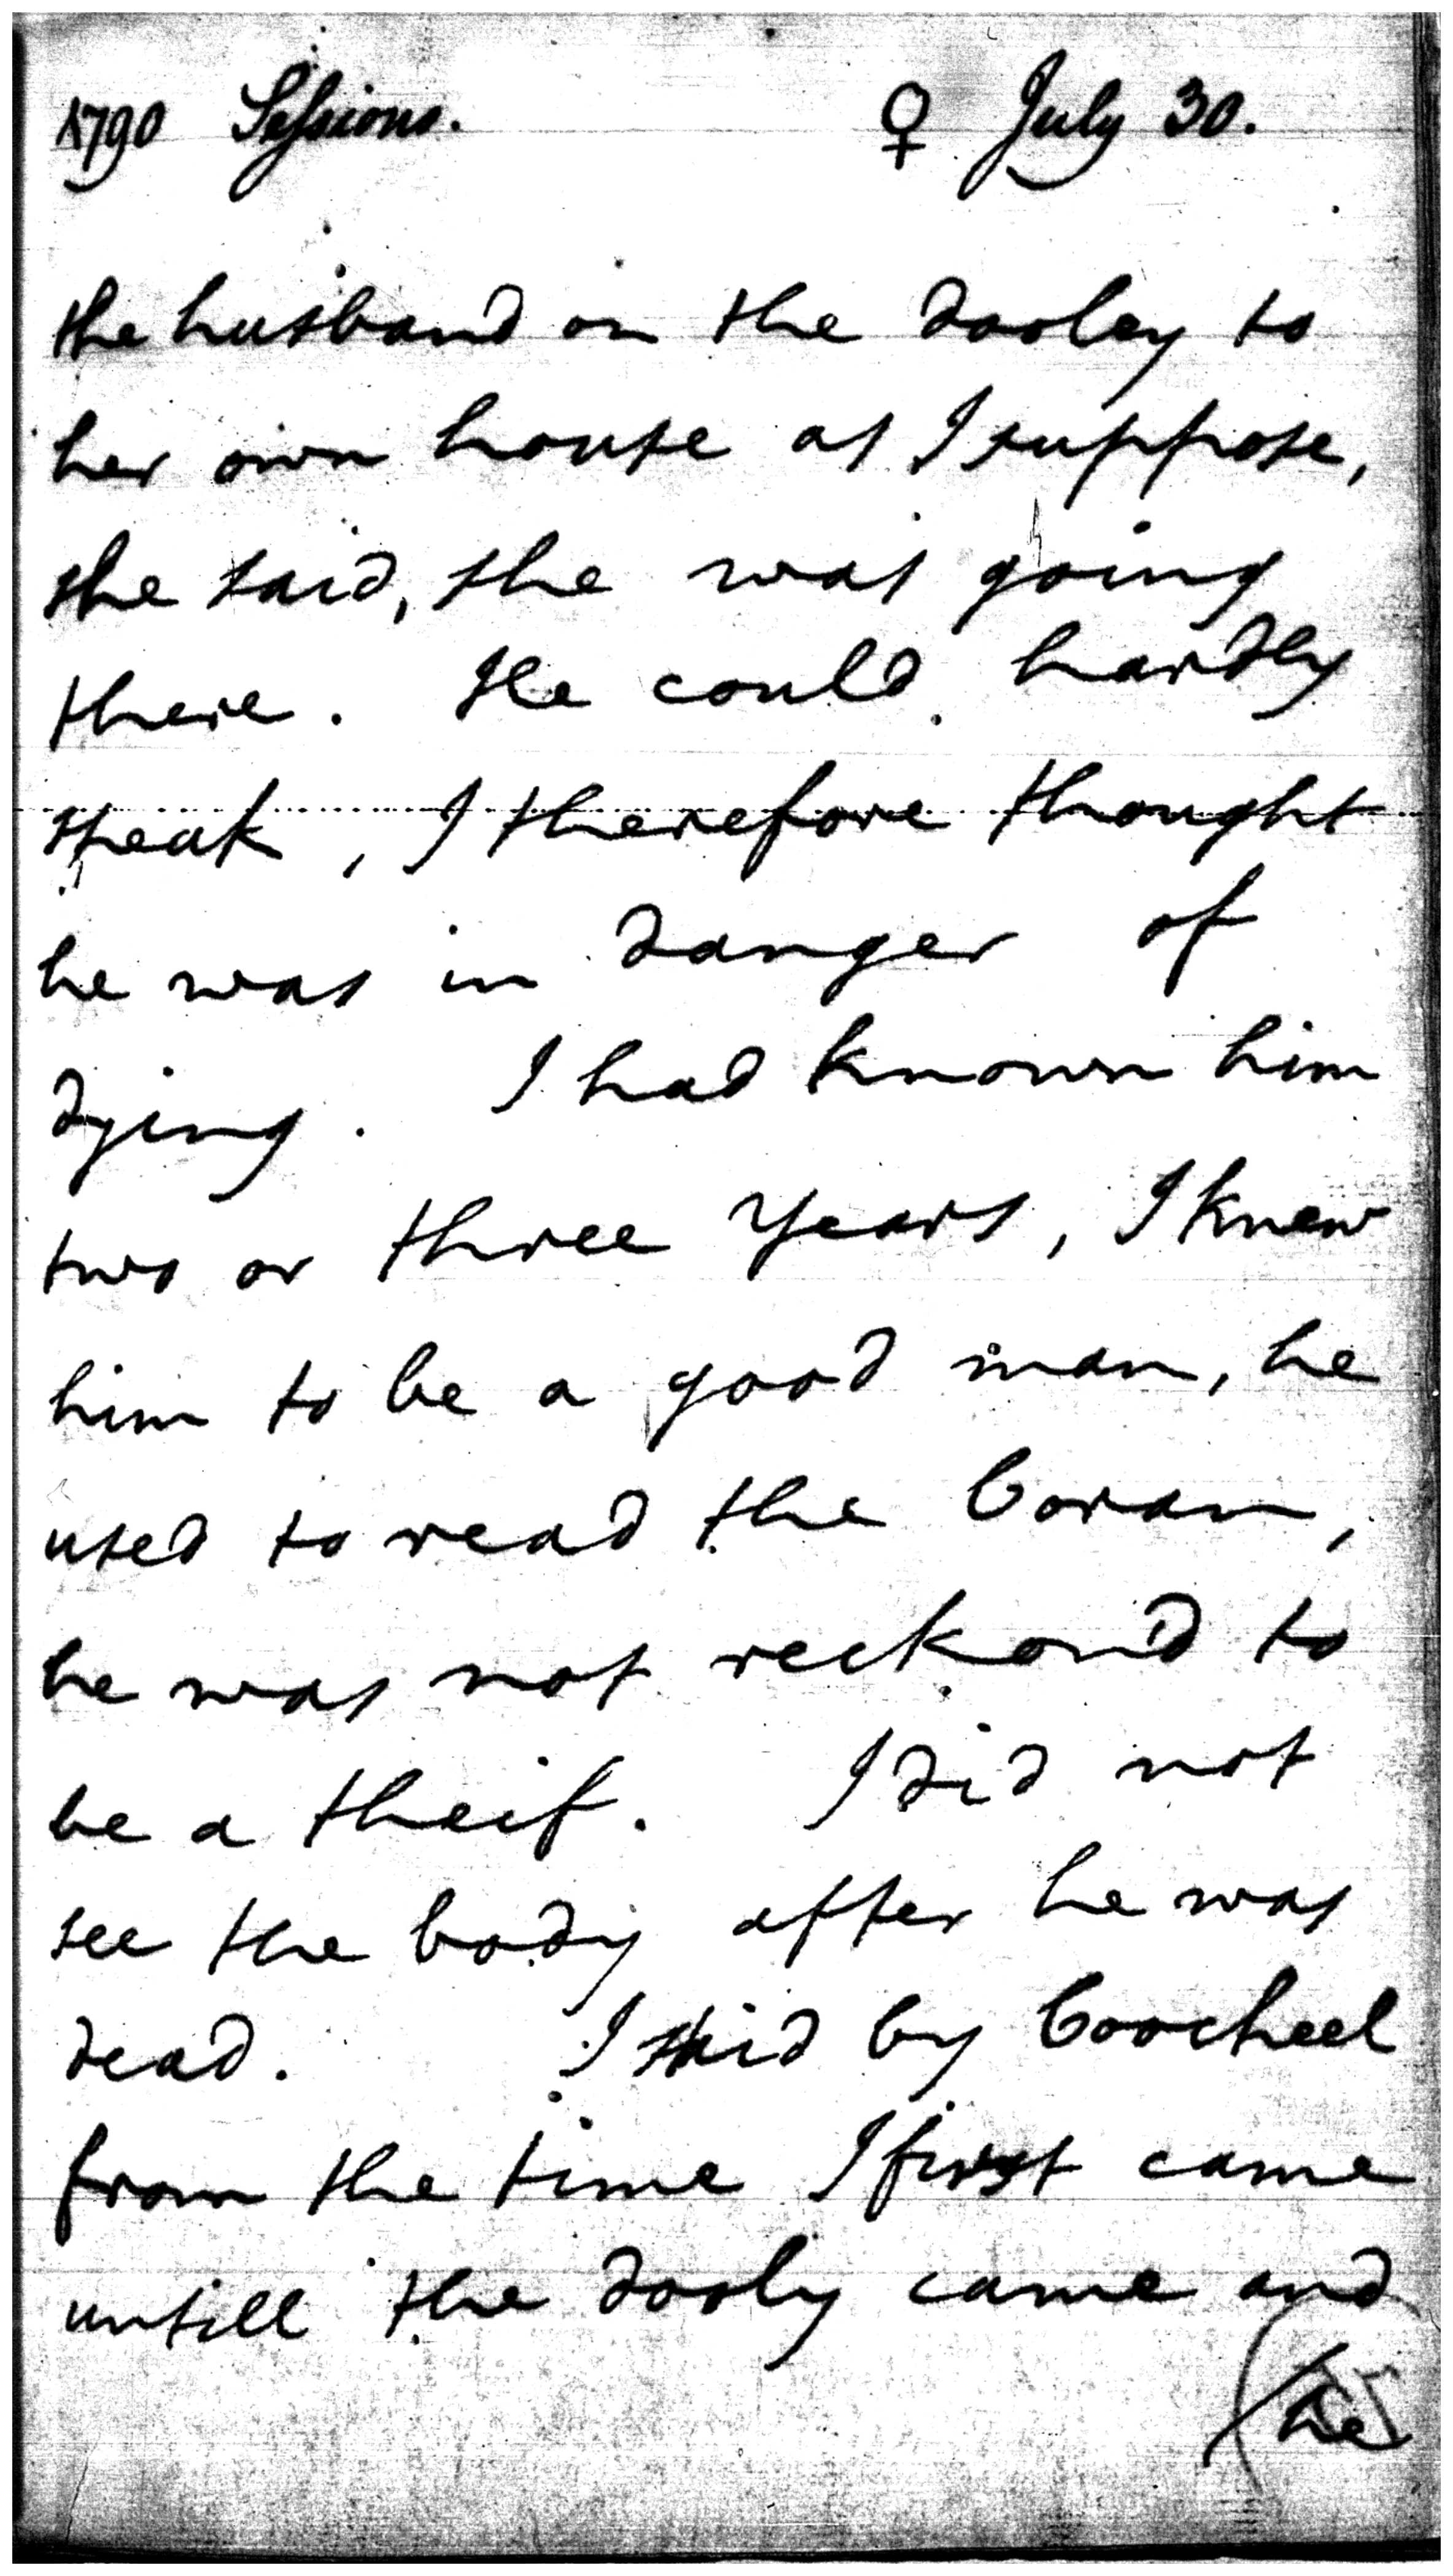 1790 Sessions. ♀ July 30.
the husband on the dooley to
her own house as I suppose,
she said, she was going
there. He could hardly
speak, I therefore thought
he was in danger of
dying. I had known him
two or three years, I knew
him to be a good man, he
used to read the Coran,
he was not reckond to
be a theif. I did not
see the body after he was
dead. I staid by Coocheel
from the time I first came
untill the dooly came and
he